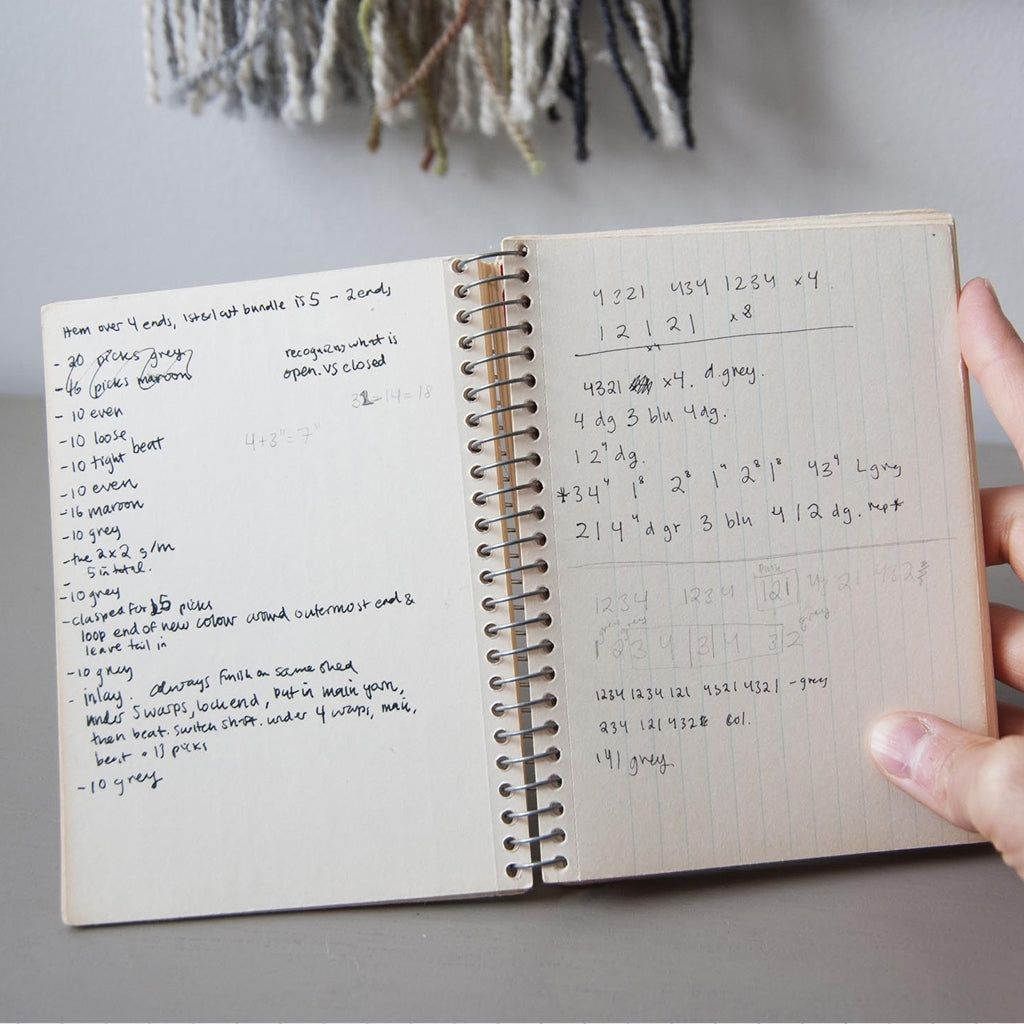 Hem over 4 ends, 1st & last bundle is 5 - 2 ends
- 20 picks grey
- 46 picks maroon
recognizing what is
open. vs closed
- 10 even
- 10 loose
- 10 tight beat
4+3"=7"
-14=18
- 10 even
- 16 maroon
- 10 grey
- the 2x2 g/m
5 in total.
-
- 10 grey
- clasped for 15 picks
loop end of new colour around outermost end &
leave tail in
- 10 grey
- inlay. always finish on same shed
under 5 warps, lock end, put in main yarn,
then beat. switch shaft. under 4 warps, main,
beat • 13 picks
- 10 grey
4321 434 1234 x4.
1 2 1 2 1 x8
x4
4321 x4. d.grey.
4 dg 3 blu 4 dg.
1 2⁴ dg.
*34⁴ 1⁸ 2⁸ 1⁴ 2⁸ 1⁸ 43⁴ L grey
214⁴ d gr 3 blu 4 1 2 dg. rep*
1234 1234 121 4 21 432
grey
1 2 3 4 3 4 3 2
1234 1234 121 4321 4321 - grey
234 121 432 col.
141 grey.